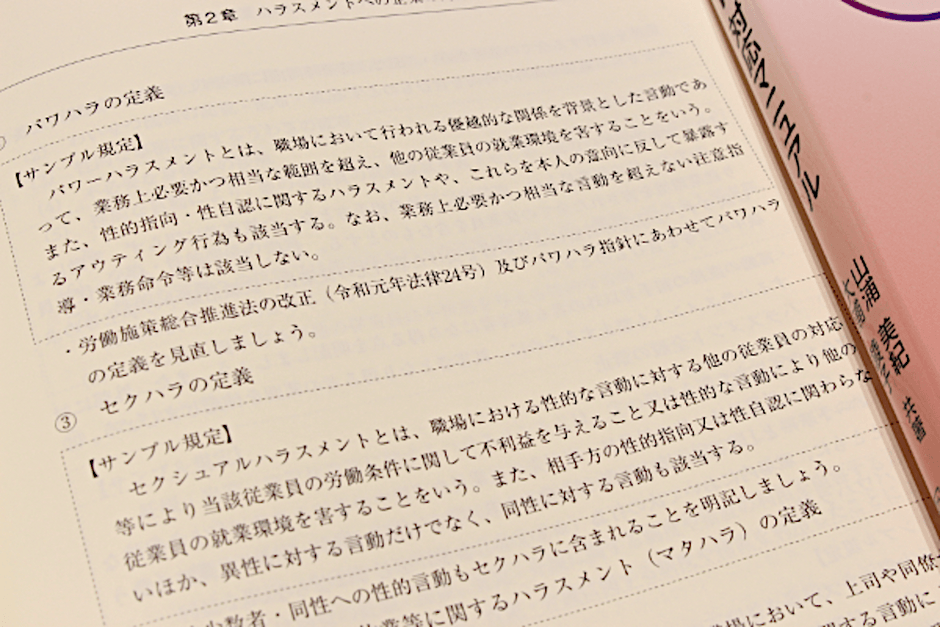 第2章 ハラスメントへの企業
パワハラの定義
【サンプル規定】
パワーハラスメントとは、職場において行われる優越的な関係を背景とした言動であ
って、業務上必要かつ相当な範囲を超え、他の従業員の就業環境を害することをいう。
また、性的指向・性自認に関するハラスメントや、これらを本人の意向に反して暴露す
るアウティング行為も該当する。なお、業務上必要かつ相当な言動を超えない注意指
導・業務命令等は該当しない。
・労働施策総合推進法の改正（令和元年法律24号）及びパワハラ指針にあわせてパワハラ
の定義を見直しましょう。
③ セクハラの定義
【サンプル規定】
セクシュアルハラスメントとは、職場における性的な言動に対する他の従業員の対応
等により当該従業員の労働条件に関して不利益を与えること又は性的な言動により他の
従業員の就業環境を害することをいう。また、相手方の性的指向又は性自認に関わらな
いほか、異性に対する言動だけでなく、同性に対する言動も該当する。
少数者・同性への性的言動もセクハラに含まれることを明記しましょう。
業等に関するハラスメント（マタハラ）の定義
場において、上司や同僚
する言動に
対応マニュアル
山浦 美紀
大浦 共著